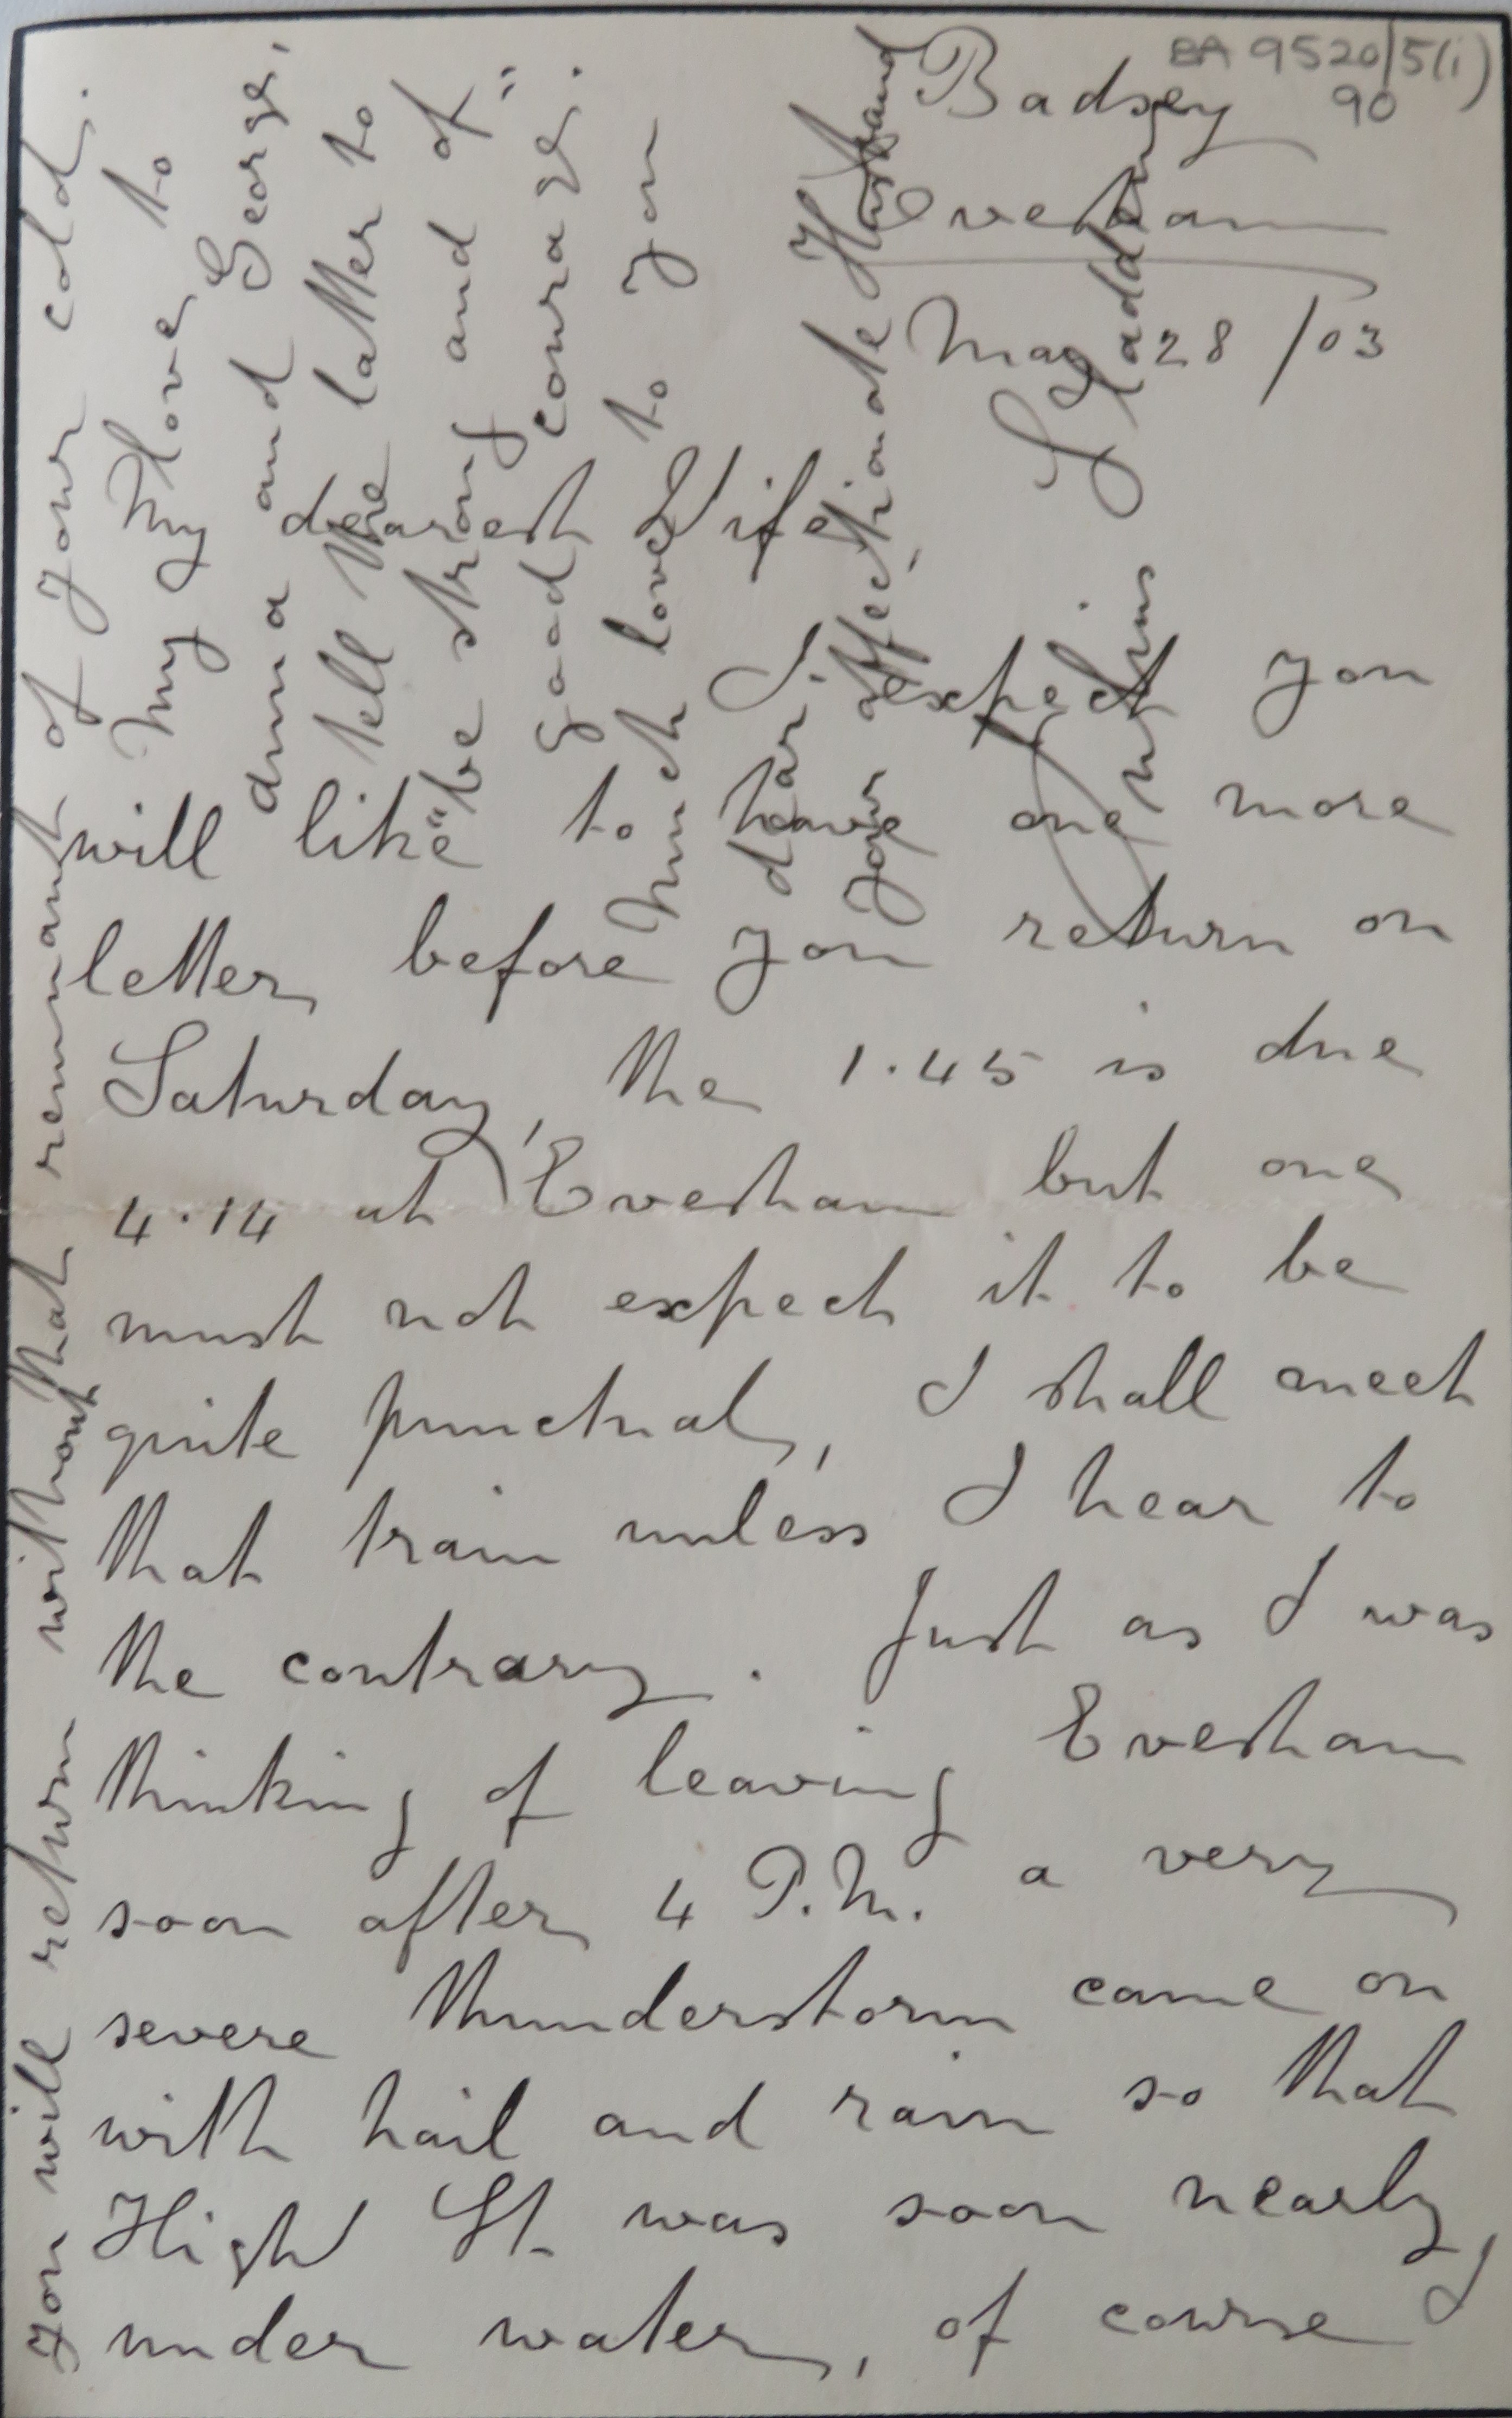 BA 9520/5(i)
90
Badsey
Evesham
May 28 /03
My dearest Wife,
I expect you
will like to have one more
letter before you return on
Saturday, the 1.45 is due
4.14 at Evesham but one
must not expect it to be
quite punctual, I shall meet
that train unless I hear to
the contrary. Just as I was
thinking of leaving Evesham
soon after 4 P.M. a very
severe thunderstorm came on
with hail and rain so that
High St. was soon nearly
under water, of course I
you will return without that remnant of your cold.
My Love to
Anna and George,
tell the latter to
"be strong and of
good courage."
Much love to you
dear.
Your affectionate Husband
Julius Sladden